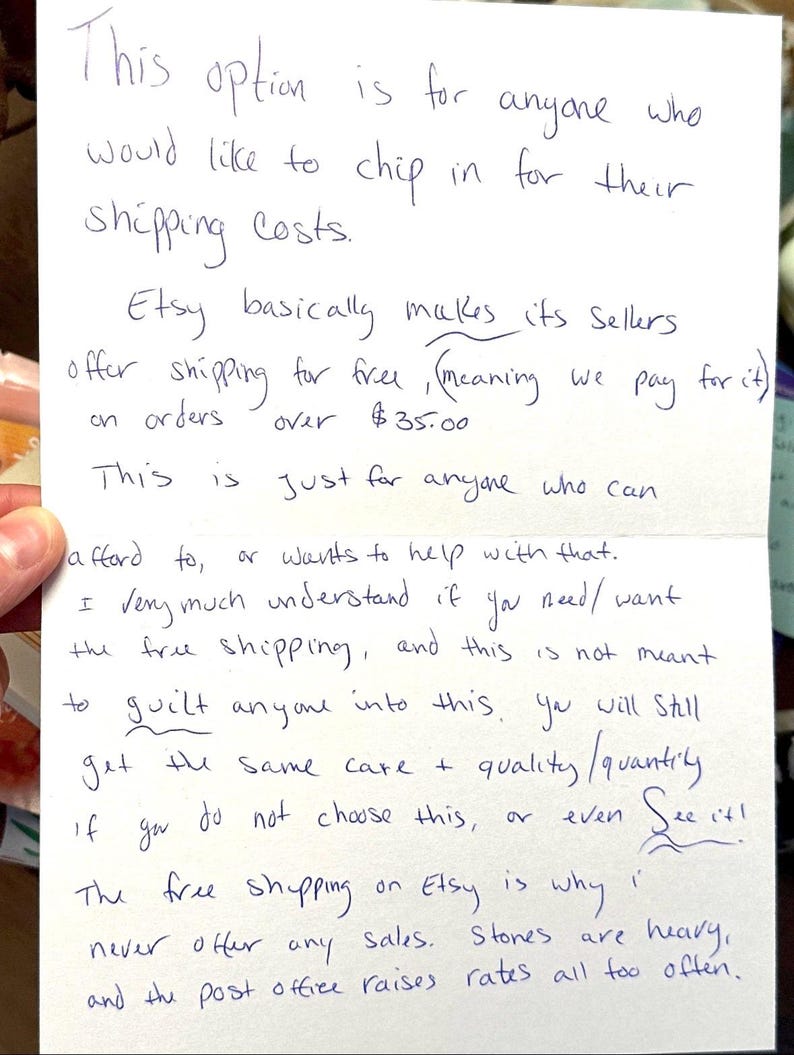 This option is for anyone who
would like to chip in for their
shipping costs.
Etsy basically makes its sellers
offer shipping for free, (meaning we pay for it)
on orders over $35.00
This is just for anyone who can
afford to, or wants to help with that.
I very much understand if you need/want
the free shipping, and this is not meant
to guilt anyone into this. You will still
get the same care + quality/quantity
if you do not choose this, or even See it!
The free shipping on Etsy is why i
never offer any sales. Stones are heavy,
and the post office raises rates all too often.